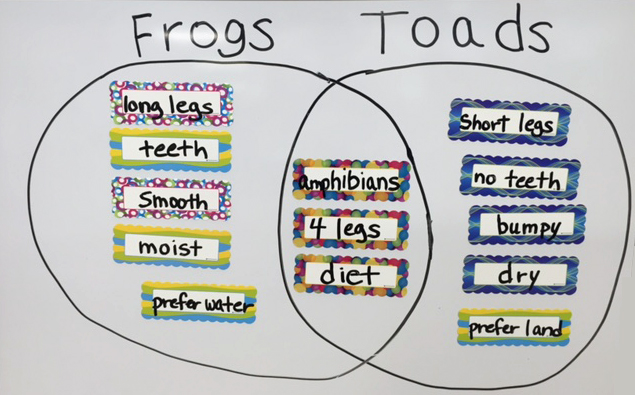 Frogs
Toads
long legs
teeth
Smooth
moist
prefer water
amphibians
4 legs
diet
Short legs
no teeth
bumpy
dry
prefer land